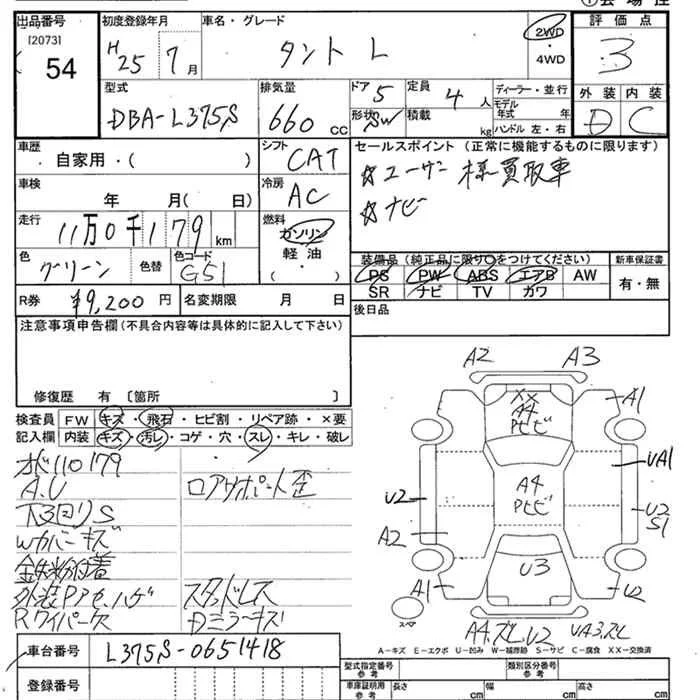 出品番号 初度登録年月 車名・グレード 評価点
[2073]
54 H25 7月 タント L 2WD・4WD 3
型式 排気量 ドア 5 定員 4人 ディーラー・並行 外装 内装
DBA-L375S 660cc 形状 SW 積載 kg モデル年式 年 D C
ハンドル 左・右
車歴 自家用・( ) シフト CAT セールスポイント(正常に機能するものに限ります)
車検 年 月( 日) 冷房 AC ☆ユーザー様買取車
☆ナビ
走行 11万0千179km 燃料 ガソリン
軽油
( )
色 グリーン 色替 色コード G51 装備品(純正品に限り○をつけてください) 新車保証書
PS PW ABS エアB AW 有・無
SR ナビ TV カワ
R券 ¥9,200円 名変期限 月 日 後日品
注意事項申告欄(不具合内容等は具体的に記入して下さい)
修復歴 有〔箇所 〕
検査員 FW キズ・飛石・ヒビ割・リペア跡・×要
記入欄 内装 キズ・汚レ・コゲ・穴・スレ・キレ・破レ
オド110179
A.U ロアサポート歪
下回りS
Wカバーキズ
鉄粉付着
外装Pアセ.ハゲ スタッドレス
Rワイパー欠 Dミラーキズ
車台番号 L375S-0651418
登録番号
A2 A3
XX
A4
Pヒビ
A1
UA1
A4
Pヒビ
U2
U2
S1
A2
U3
A1
U2
スペア
A4.スレ.U2 UA3.スレ
A-キズ E-エクボ U-凹み W-補修跡 S-サビ C-腐食 XX-交換済
型式指定番号 参考 類別区分番号 参考
車庫証明用 参考 長さ cm 幅 cm 高さ cm